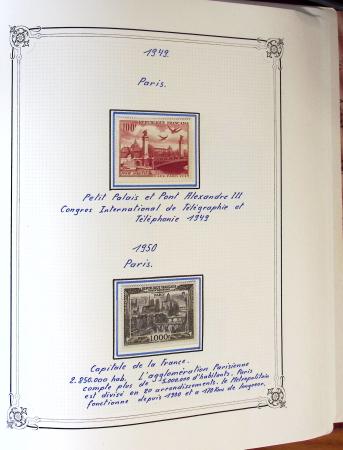 1949.
Paris.
RÉPUBLIQUE FRANÇAISE
100F
Petit Palais et Pont Alexandre III
Congres International de Télégraphie et
Téléphonie 1949
1950
Paris.
RÉPUBLIQUE FRANÇAISE
PARIS
1000F
Capitale de la France.
2.850.000 hab. L'agglomération Parisienne
compte plus de 5.000.000 d'habitants. Paris
est divisé en 20 arrondissements. le Metropolitain
fonctionne depuis 1900 et a 170 Kms de longueur.